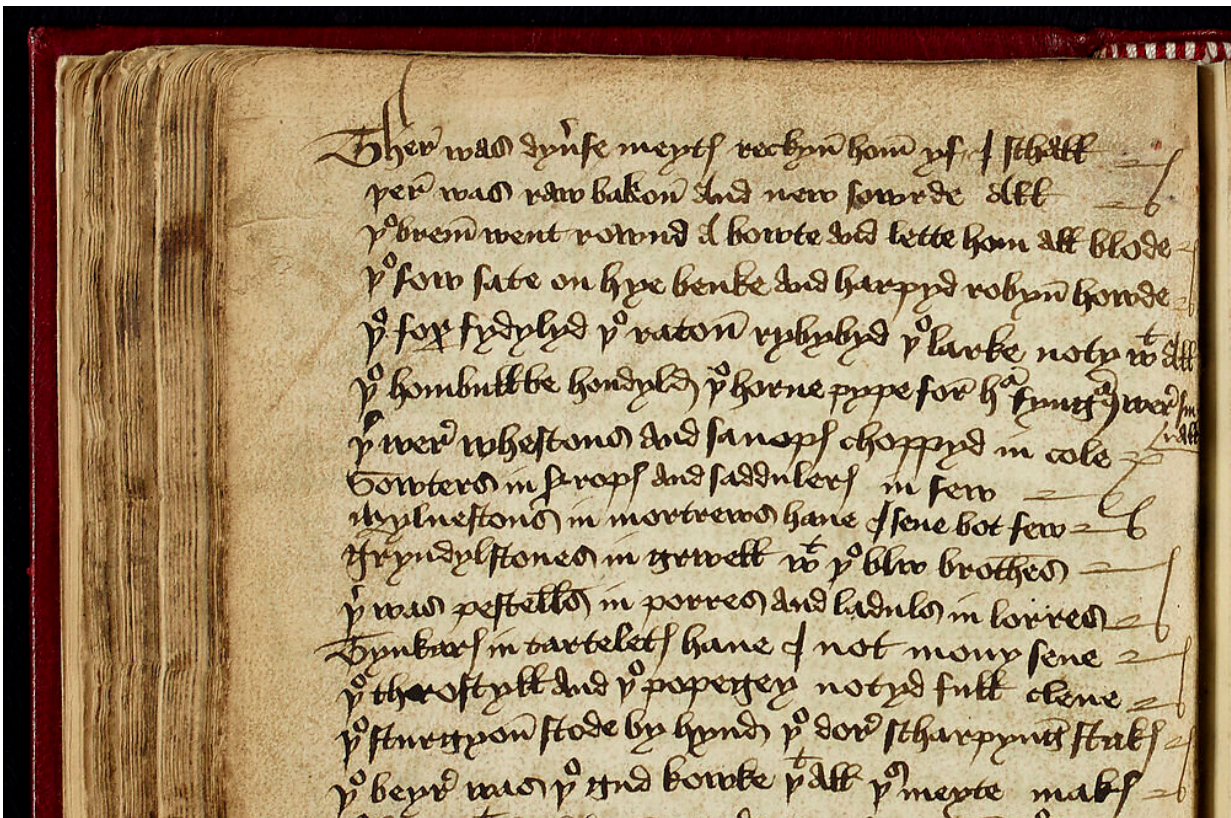 Ther was dyverse meytes reckyn hom yf I schall
þer was raw bakon and new sowrde all
þe brem went rownd a bowte and lette hom all blode
þe sow sate on hye benke and harpyd robyn howde
þe fox fydylyd þe raton rybybyd þe larke noty wt all
þe hombulbe hondyld þe horne pype for hur fyngurs wer smalle
þer wer whestons and sanops choppyd in cole
Sowters in syrops and saddulers in sew
Mylnestons in mortrews have I sene bot few
Gryndylstones in grwell wt þe blw brothes
þer was pestells in porres and laduls in lorres
Tynkars in tartelets have I not mony sene
þe throstyll and þe popegey notyd full clene
þe sturgyon stode by hynd þe dore scharpyng stakes
þe beyre was þe gud kowke þt all þe meyte makes